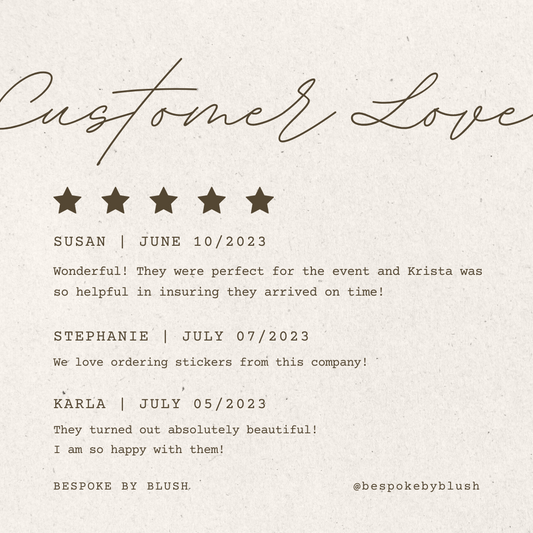 Customer Love
SUSAN | JUNE 10/2023
Wonderful! They were perfect for the event and Krista was
so helpful in insuring they arrived on time!
STEPHANIE | JULY 07/2023
We love ordering stickers from this company!
KARLA | JULY 05/2023
They turned out absolutely beautiful!
I am so happy with them!
BESPOKE BY BLUSH
@bespokebyblush